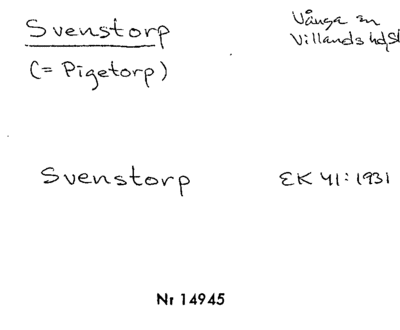 Svenstorp
(= Pigetorp)
Vånga sn
Villands hd, Sk
Svenstorp
EK 41:1931
Nr 14945